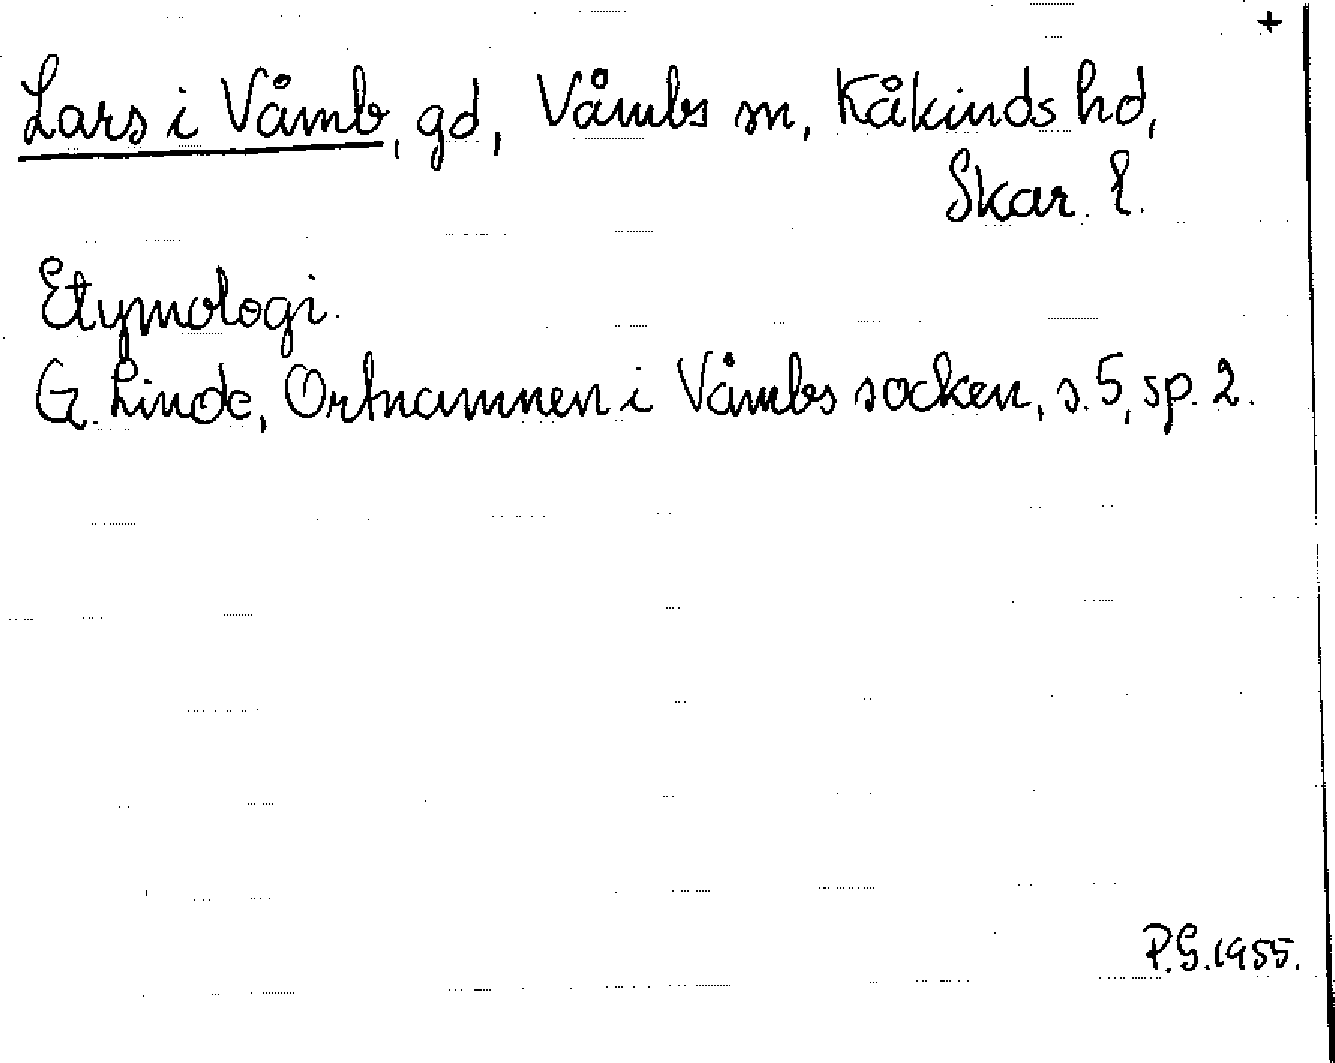 +
Lars i Våmb, gd, Våmbs sn, Kåkinds hd,
Skar. l.
Etymologi.
G. Linde, Ortnamnen i Våmbs socken, s. 5, sp. 2.
P.G. 1955.